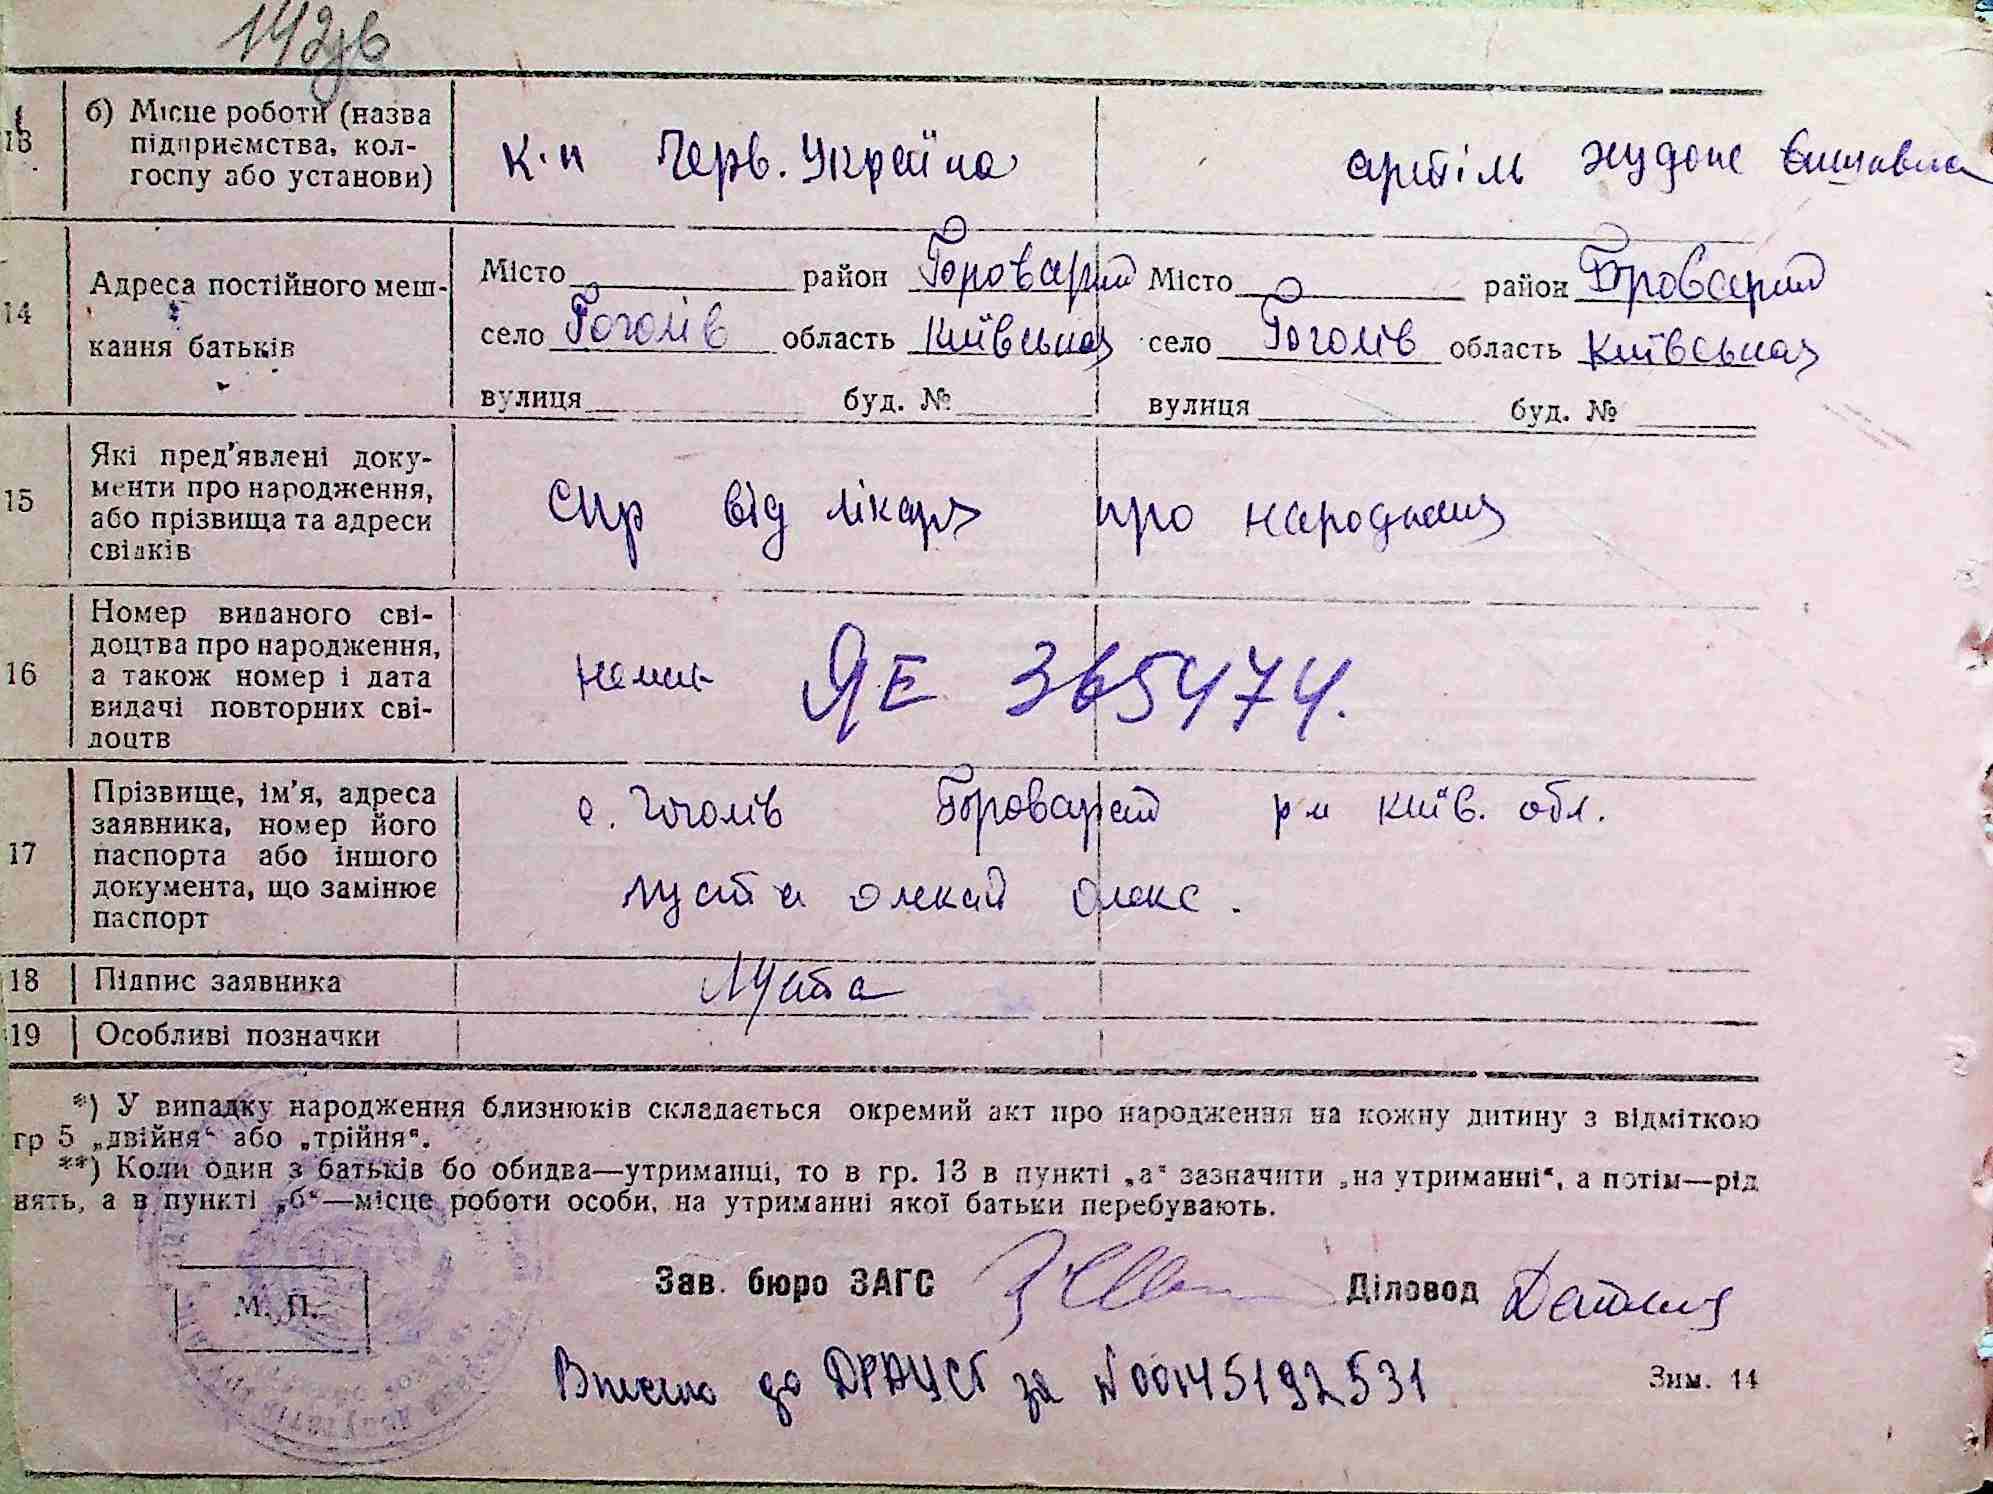 142зв
13
б) Місце роботи (назва
підприємства, кол-
госпу або установи)
к-п Черв. Україна
артіль
14
Адреса постійного меш-
кання батьків
Місто район Броварський
село Гоголів область Київська
вулиця буд. №
Місто район Броварський
село Гоголів область Київська
вулиця буд. №
15
Які пред'явлені доку-
менти про народження,
або прізвища та адреси
свідків
Спр від лікаря про народження
16
Номер виданого сві-
доцтва про народження,
а також номер і дата
видачі повторних сві-
доцтв
ЯЕ 365474.
17
Прізвище, ім'я, адреса
заявника, номер його
паспорта або іншого
документа, що замінює
паспорт
с. Гоголів Броварський р-н Київ. обл.
Луста Олексій Олекс.
18
Підпис заявника
Луста
19
Особливі позначки
*) У випадку народження близнюків складається окремий акт про народження на кожну дитину з відміткою
гр 5 „двійня“ або „трійня“.
**) Коли один з батьків бо обидва—утриманці, то в гр. 13 в пункті „а“ зазначити „на утриманні“, а потім—рід
нять, а в пункті „б“—місце роботи особи, на утриманні якої батьки перебувають.
Зав. бюро ЗАГС
Діловод
М. П.
Внесено до ДРАЦСГ за №00145192531
Зим. 14